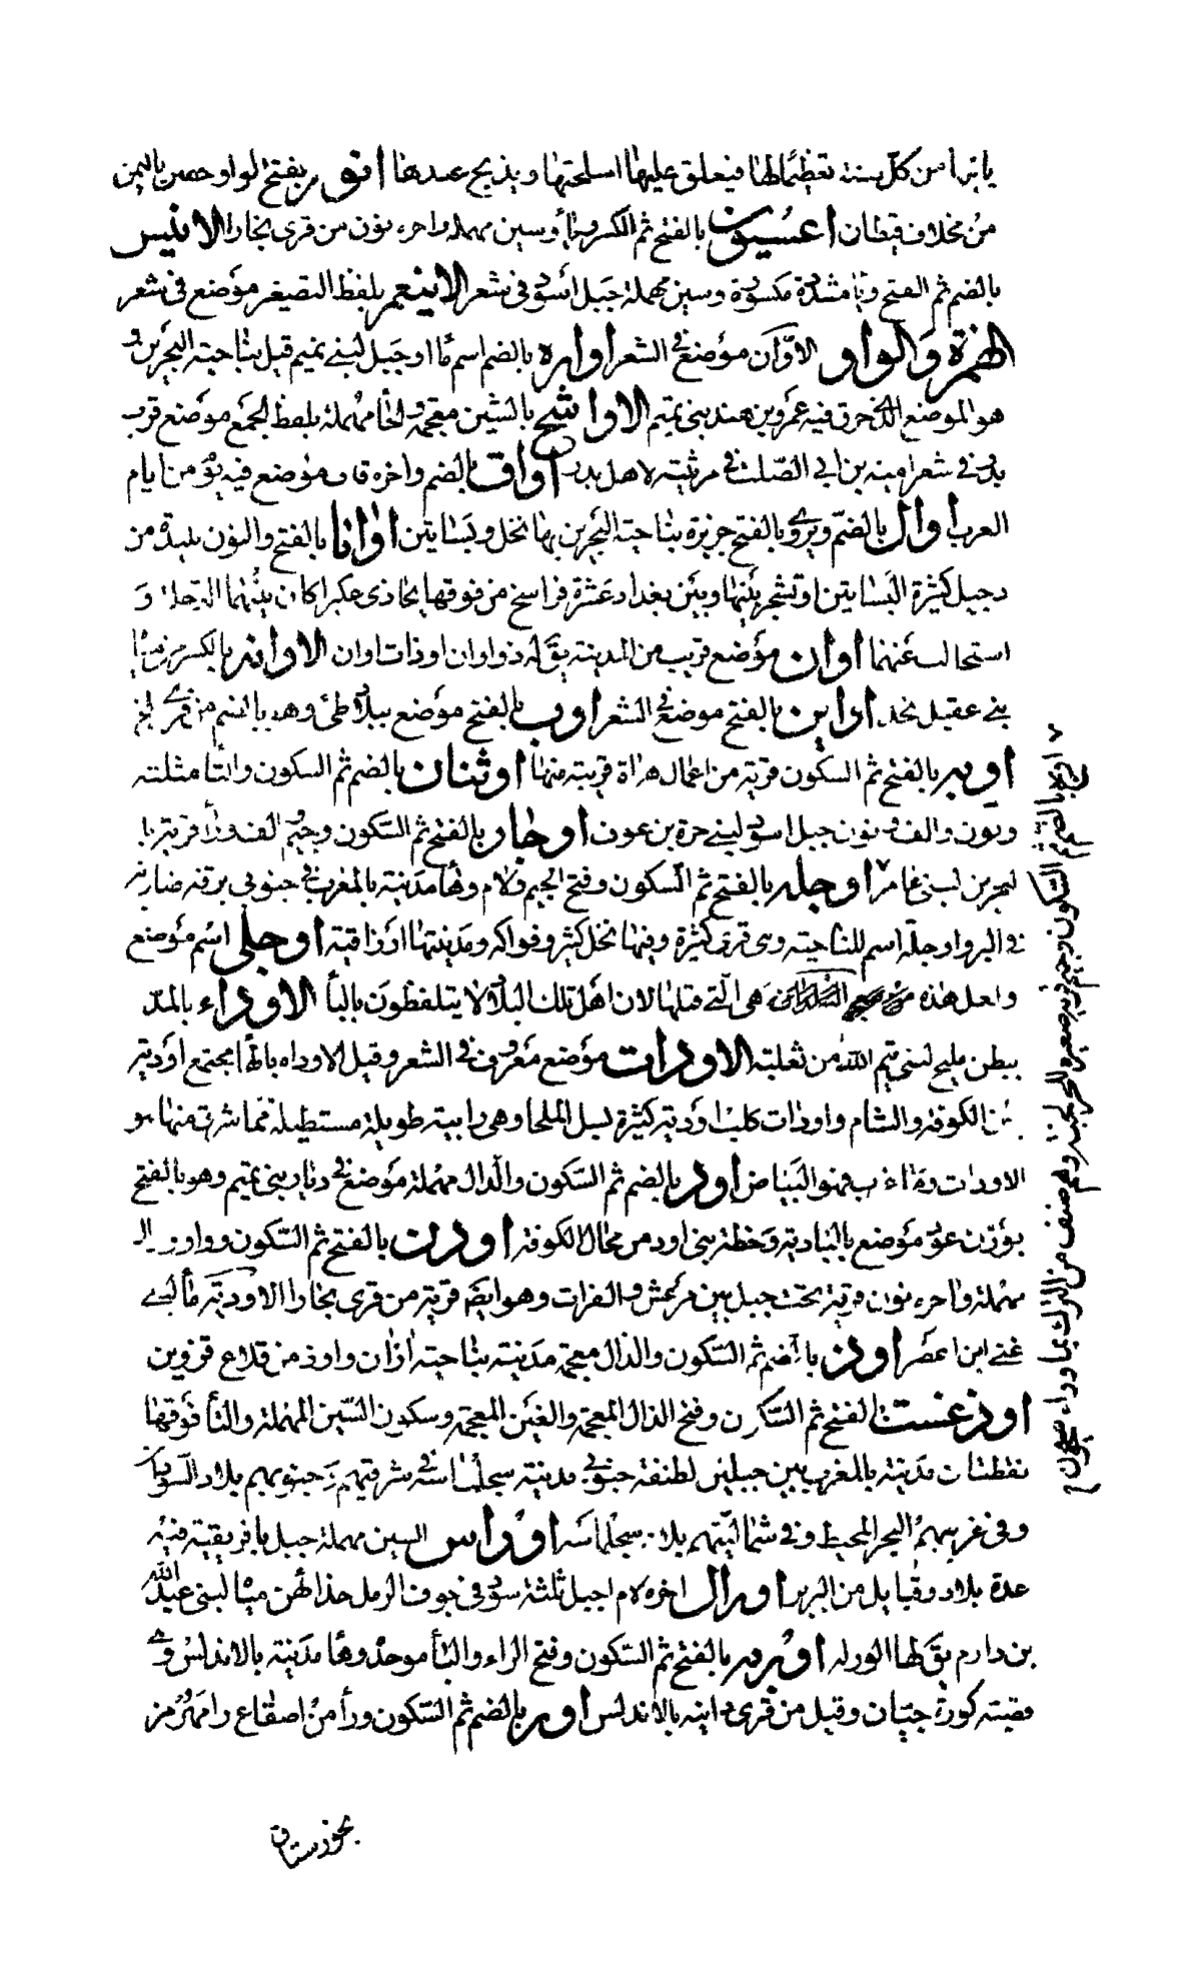 ياتيها من كل سنة تعظيما لها فيعلق عليها اسلحتها ويذبح عندها انور بفتح الواو حصن باليمن
من مخلاف قيظان انيسون بالفتح ثم الكسر وياء وسين مهملة واخره نون من قرى بخارا الانيس
بالضم ثم الفتح ويا مشددة مكسورة وسين مهملة جبل اسود فى شعر الانيعم بلفظ التصغير موضع فى شعر
الهمزة والواو الاوان موضع فى الشعر اواره بالضم اسم ما او جبل لبنى تميم قيل بناحية البحرين و
هو الموضع الذى حرق فيه عمرو بن هند بنى تميم الاواشح بالشين معجمة والحا مهملة بلفظ الجمع موضع قرب
بدر فى شعر امية بن ابى الصلت فى مرثيته لاهل بدر اواق بالضم واخره قاف موضع فيه يوم من ايام
العرب اوال بالضم ويروى بالفتح جزيرة بناحية البحرين بها نخل وبساتين اوانا بالفتح والنون بليدة من
دجيل كثيرة البساتين والشجر بينها وبين بغداد عشرة فراسخ من فوقها يحاذى عكبرا كان بينهما الدجلة و
استحالت عنهما اوان موضع قريب من المدينة يق له ذو اوان او ذات اوان الاوانه بالكسر من مياه
بنى عقيل بنجد اواين بالفتح موضع فى الشعر اوب بالفتح موضع ببلاد طى وهو بالضم من قرى بلخ
اوبر بالفتح ثم السكون قرية من اعمال هراة قريبة منها اوثنان بالضم ثم السكون والثا مثلثة
ونون والف ونون جبل اسود لبنى مرة بن عوف اوجار بالفتح ثم السكون وجيم الف ورا قرية با
لبحرين لبنى عامر اوجله بالفتح ثم السكون وفتح الجيم ولام وها مدينة بالمغرب فى جنوبى برقة ضاربة
فى البر واوجلة اسم للناحية وهى قرى كثيرة وفيها نخل كثير وفواكه ومدينتها ارزاقية اوجلى اسم موضع
ولعل هذه هى التى قبلها لان اهل تلك البلاد لا يتلفظون بالها الاوداء بالمد
ببطن مليح لبنى تيم الله من ثعلبة الاودات موضع معروف فى الشعر وقيل الاوداه بالها مجتمع اودية
بين الكوفة والشام واودات كلب اودية كثيرة تسل الملحا وهى رابية طويلة مستطيلة فما شرق منها هو
الاودات وما غرب فهو البياض اود بالضم ثم السكون والدال مهملة موضع فى ديار بنى تميم وهو بالفتح
بوزن عود موضع بالبادية وخطة بنى اود من محال الكوفة اودن بالفتح ثم السكون وواو ودال
مهملة واخره نون قرية تحت جبل بين مرعش والفرات وهو ايضا قرية من قرى بخارا الاودية ما لبنى
غنى ابن اعصر اوذ بالضم ثم السكون والذال معجمة مدينة بناحية اران واوذ من قلاع قزوين
اوذغست بالفتح ثم السكون وفتح الذال المعجمة والغين المعجمة وسكون السين المهملة والتا فوقها
نقطتان مدينة بالمغرب بين جبلين لطيفة جنوبى مدينة سجلماسة فى شرقيهم وجنوبيهم بلاد السودان
وفى غربيهم البحر المحيط وفى شماليهم بلاد سجلماسه اوراس السين مهملة جبل بافريقية فيه
عدة بلاد وقبايل من البربر اورال اخره لام اجبل ثلثة سود فى جوف الرمل حذائهن ميا لبنى عبد الله
بن دارم يق لها الورله اوربه بالفتح ثم السكون وفتح الراء والبا موحدة وها مدينة بالاندلس وهى
قصبة كورة جيان وقيل من قرى دانية بالاندلس اور بالضم ثم السكون ورا من اصقاع رامهرمز
بخوزستان